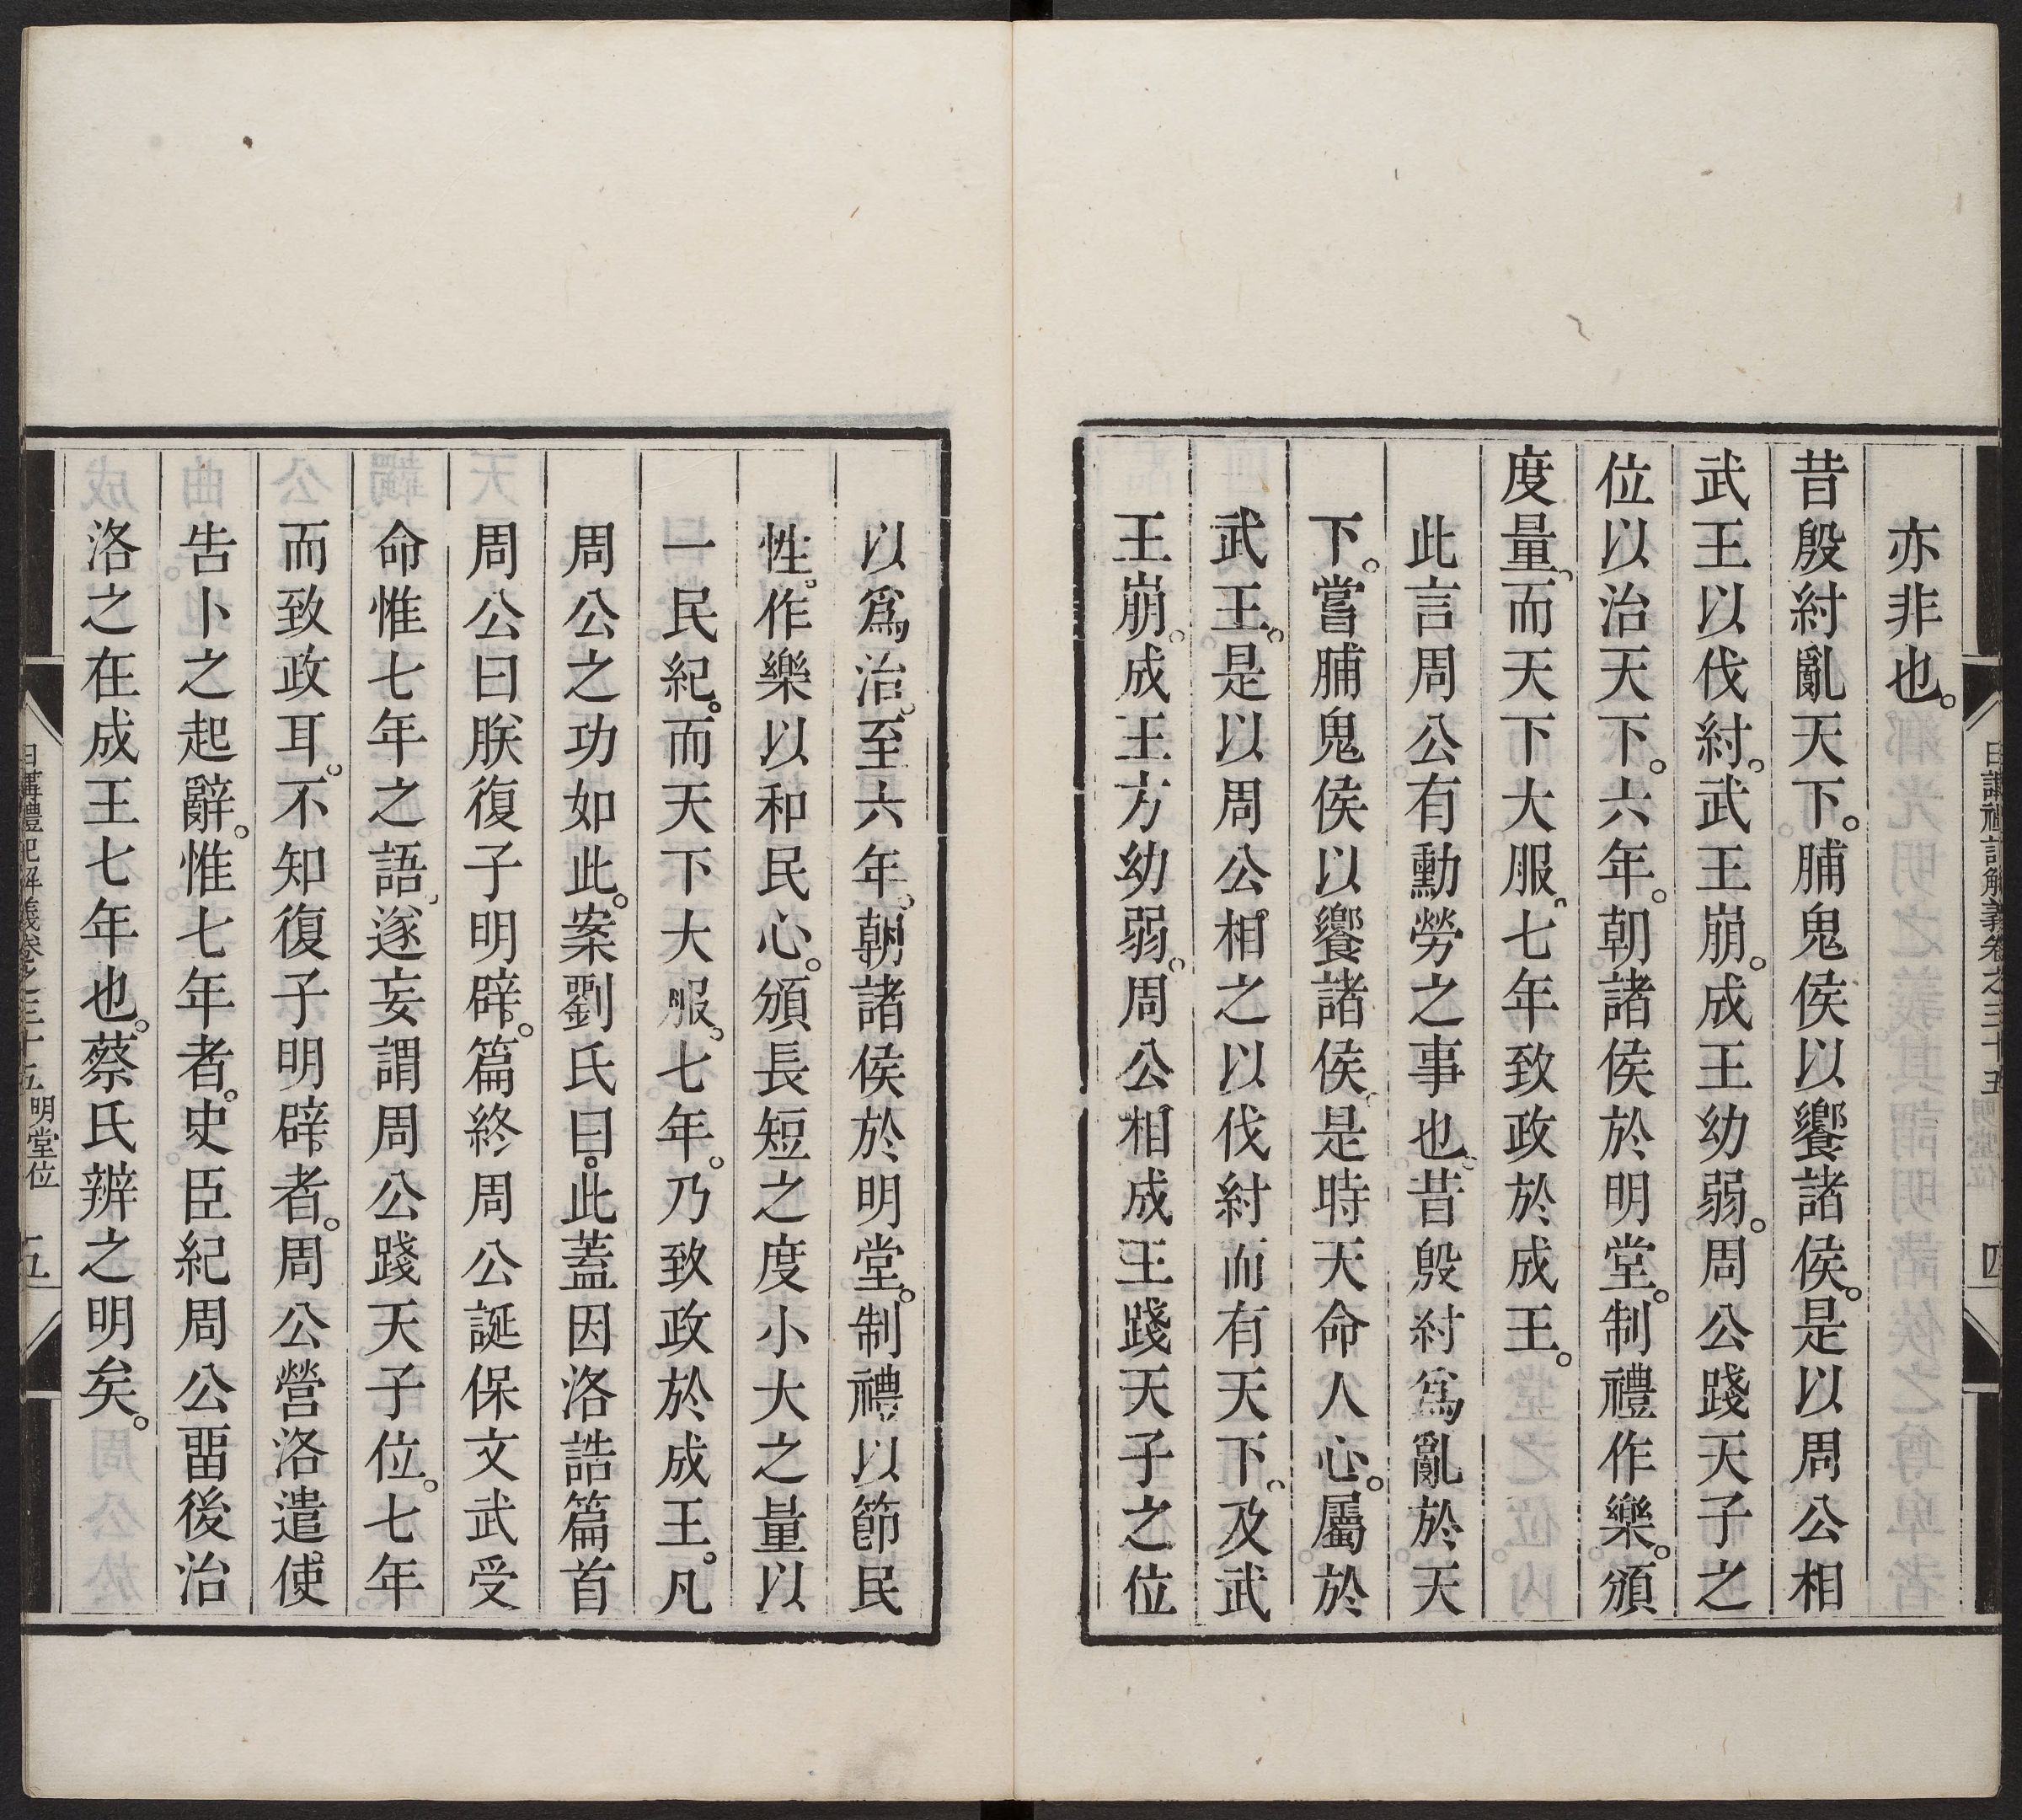 亦非也。
昔殷紂亂天下。脯鬼侯以饗諸侯。是以周公相
武王以伐紂。武王崩。成王幼弱。周公踐天子之
位以治天下。六年。朝諸侯於明堂。制禮作樂。頒
度量、而天下大服、七年致政於成王。
此言周公有勳勞之事也。昔殷紂爲亂於天
下。嘗脯鬼侯以饗諸侯、是時天命人心。屬於
武王。是以周公相之以伐紂而有天下。及武
王崩。成王方幼弱。周公相成王踐天子之位
以爲治。至六年、朝諸侯於明堂。制禮以節民
性。作樂以和民心。頒長短之度小大之量以
一民紀。而天下大服、七年。乃致政於成王。凡
周公之功如此。案劉氏曰。此蓋因洛誥篇首
周公曰朕復子明辟。篇終周公誕保文武受
命惟七年之語、遂妄謂周公踐天子位。七年
而致政耳。不知復子明辟者。周公營洛遣使
告卜之起辭。惟七年者。史臣紀周公畱後治
洛之在成王七年也。蔡氏辨之明矣。
日講禮記解義卷之三十五 明堂位 四
日講禮記解義卷之三十五 明堂位 五